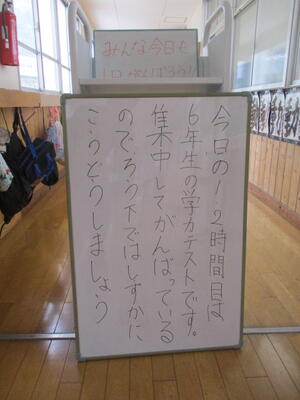 みんな今日も
1日がんばろう!!
今日の1.2時間目は
6年生の学力テストです。
集中してがんばっている
ので、ろう下ではしずかに
こうどうしましょう